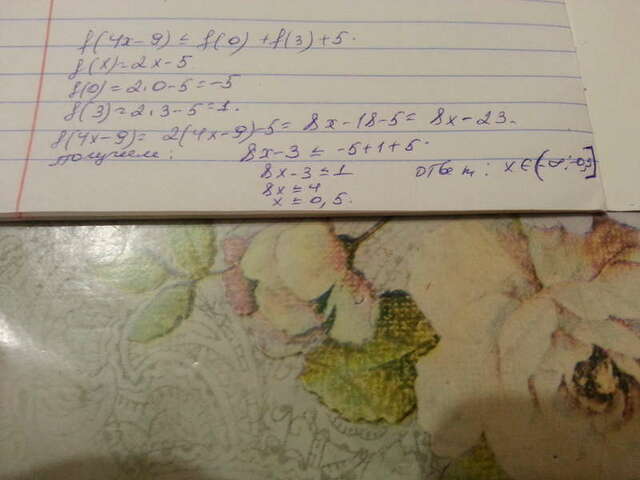 f(4x-9) ≤ f(0) + f(3) + 5.
f(x) = 2x-5
f(0) = 2·0-5 = -5
f(3) = 2·3-5 = 1.
f(4x-9) = 2(4x-9)-5 = 8x-18-5 = 8x-23.
получаем: 8x-3 ≤ -5+1+5.
8x-3 ≤ 1 ответ: x∈(-∞;0,5]
8x ≤ 4
x ≤ 0,5.